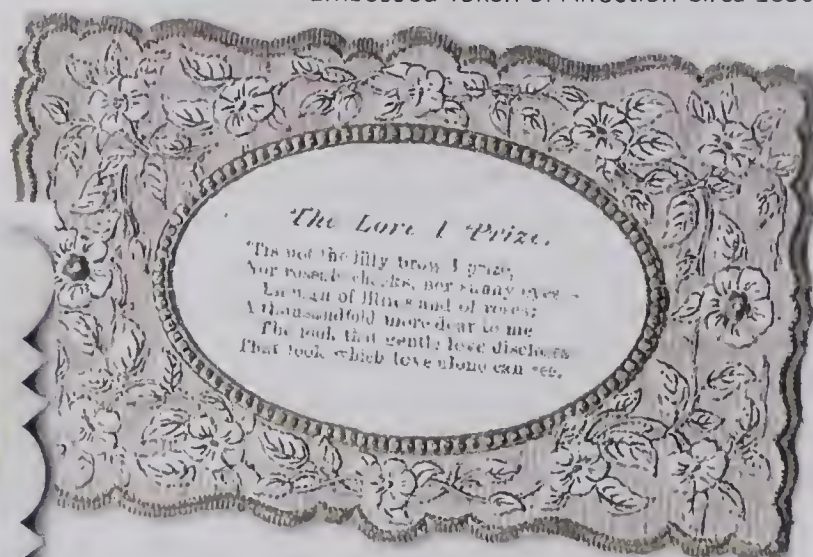 The Love I Prize.
'Tis not the lilly brow I prize,
Nor roseate cheeks, nor sunny eyes
of lilies and of roses;
A thousandfold more dear to me
The look that gentle love discloses
That look which love alone can see.